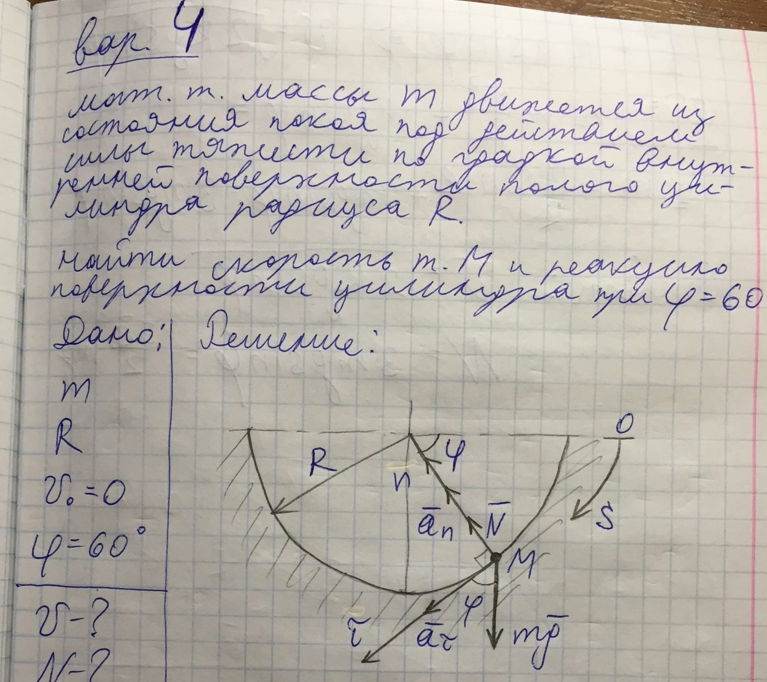 вар. 4
мат. т. массы m движется из
состояния покоя под действием
силы тяжести по гладкой внут-
ренней поверхности полого ци-
линдра радиуса R.
найти скорость т. M и реакцию
поверхности цилиндра при φ=60
Дано: Решение:
m
R
v₀=0
φ=60°
v-?
N-?
O
R
φ
n
S
ā_n
N̄
M
φ
τ̄
ā_τ
mḡ